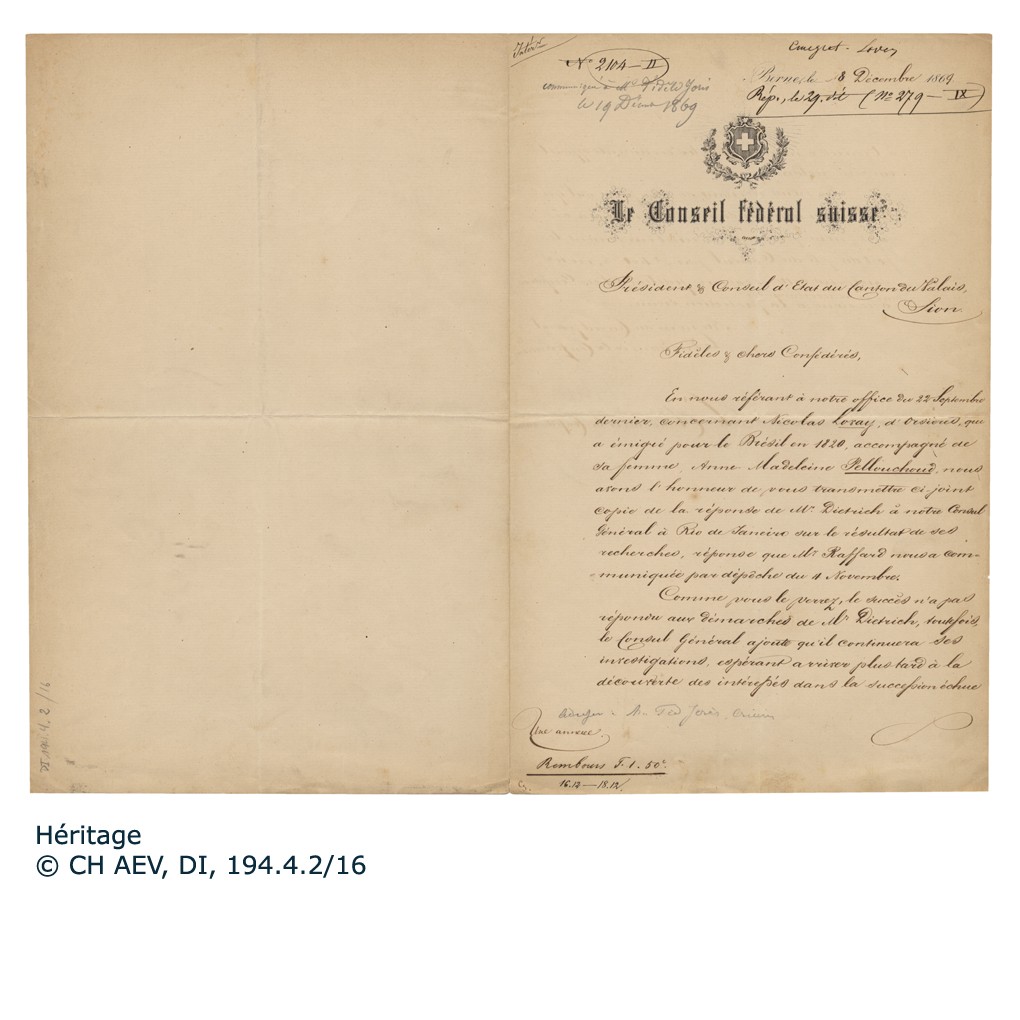 Intér.
N° 2104 — II
communiqué à Mr Fidèle Joris
le 19 Décbre 1869
Emigrat. Lovey
Berne, le 8 Decembre 1869.
Rép., le 29 dit (N° 279 — IX)
Le Conseil fédéral suisse
Président & Conseil d'Etat du Canton du Valais,
Sion.
Fidèles & chers Confédérés,
En nous référant à notre office du 22 Septembre
dernier, concernant Nicolas Lovay, d'Orsières, que
a émigré pour le Brésil en 1820, accompagné de
sa femme, Anne Madeleine Pellouchoud, nous
avons l'honneur de vous transmettre ci-joint
copie de la réponse de Mr Dietrich à notre Consul
Général à Rio de Janeiro sur le résultat de ses
recherches, réponse que Mr Raffard nous a com-
-muniquée par dépêche du 4 Novembre.
Comme vous le verrez, le succès n'a pas
répondu aux démarches de Mr Dietrich, toutefois,
le Consul Général ajoute qu'il continuera ses
investigations, espérant arriver plus tard à la
découverte des intéressés dans la succession échue
à Mr Fid Joris,
Une annexe.
Rembours F. 1. 50c.
16.12 — 18.12.
DI 194.4.2/16
Héritage
© CH AEV, DI, 194.4.2/16